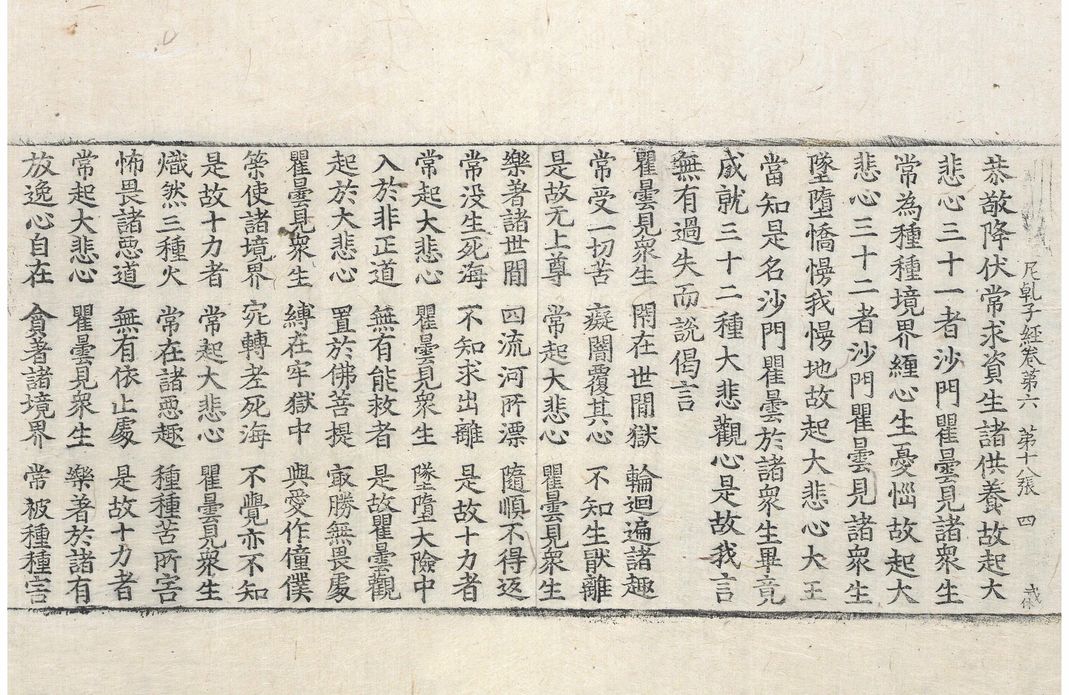 尼乹子經卷第六　第十八張　四
恭敬降伏常求資生諸供養故起大
悲心三十一者沙門瞿曇見諸衆生
常為種種境界纏心生憂惱故起大
悲心三十二者沙門瞿曇見諸衆生
墜墮憍慢我慢地故起大悲心大王
當知是名沙門瞿曇於諸衆生畢竟
成就三十二種大悲觀心是故我言
無有過失而說偈言
瞿曇見衆生　閇在世間獄　輪迴遍諸趣
常受一切苦　癡闇覆其心　不知生猒離
是故无上尊　常起大悲心　瞿曇見衆生
樂著諸世間　四流河所漂　隨順不得返
常没生死海　不知求出離　是故十力者
常起大悲心　瞿曇見衆生　墜墮大險中
入於非正道　無有能救者　是故瞿曇觀
起於大悲心　置於佛菩提　㝡勝無畏處
瞿曇見衆生　縛在牢獄中　與愛作僮僕
策使諸境界　宛轉老死海　不覺亦不知
是故十力者　常起大悲心　瞿曇見衆生
熾然三種火　常在諸惡趣　種種苦所害
怖畏諸惡道　無有依止處　是故十力者
常起大悲心　瞿曇見衆生　樂著於諸有
放逸心自在　貪著諸境界　常被種種害